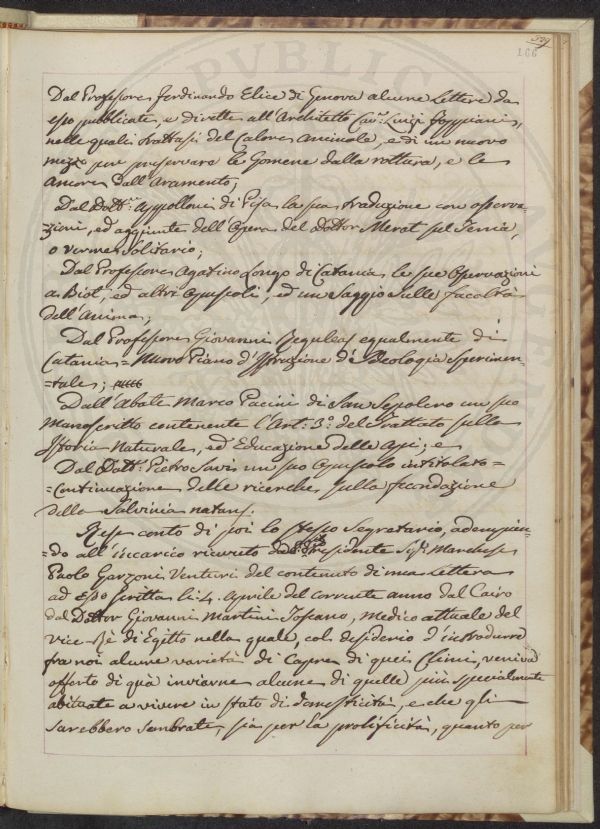 599
166
Dal Professore Ferdinando Elice di Genova alcune Lettere da
esso pubblicate, e dirette all'Architetto Cav.r Luigi Poggiani,
nelle quali trattasi del Calore Animale, e di un nuovo
mezzo per preservare le Gomene dalla rottura, e le
Ancore dall'Aramento;
Dal Dott.r Appolloni di Pisa la sua traduzione con osserva-
zioni, ed aggiunte dell'Opera del Dottor Merat sul Tenia,
o verme Solitario;
Dal Professore Agatino Longo di Catania le sue Osservazioni
a Biot, ed altri Opuscoli, ed un Saggio sulle facoltà
dell'Anima;
Dal Professore Giovanni Reguleas egualmente di
Catania = Nuovo Piano d'Istruzione d'Ideologia Sperimen-
-tale;
Dall'Abate Marco Pacini di San Sepolcro un suo
Manoscritto contenente l'Art: 3.o del Trattato sulla
Istoria Naturale, ed Educazione delle Api; e
Dal Dott: Pietro Savi un suo Opuscolo intitolato =
= Continuazione delle ricerche sulla fecondazione
della Salvinia natans.
Rese conto di poi lo stesso Segretario, adempien-
do all'incarico ricevuto dal Presidente Sig.r Marchese
Paolo Garzoni Venturi del contenuto di una Lettera
ad esso scritta li 4. Aprile del corrente anno dal Cairo
dal Dottor Giovanni Martini Toscano, Medico attuale del
Vice-Rè di Egitto nella quale, col desiderio d'introdurre
fra noi alcune varietà di Capre di quei Climi, veniva
offerto di quà inviarne alcune di quelle più specialmente
abituate a vivere in stato di domesticità, e che gli
sarebbero sembrate, sia per la prolificità, quanto per